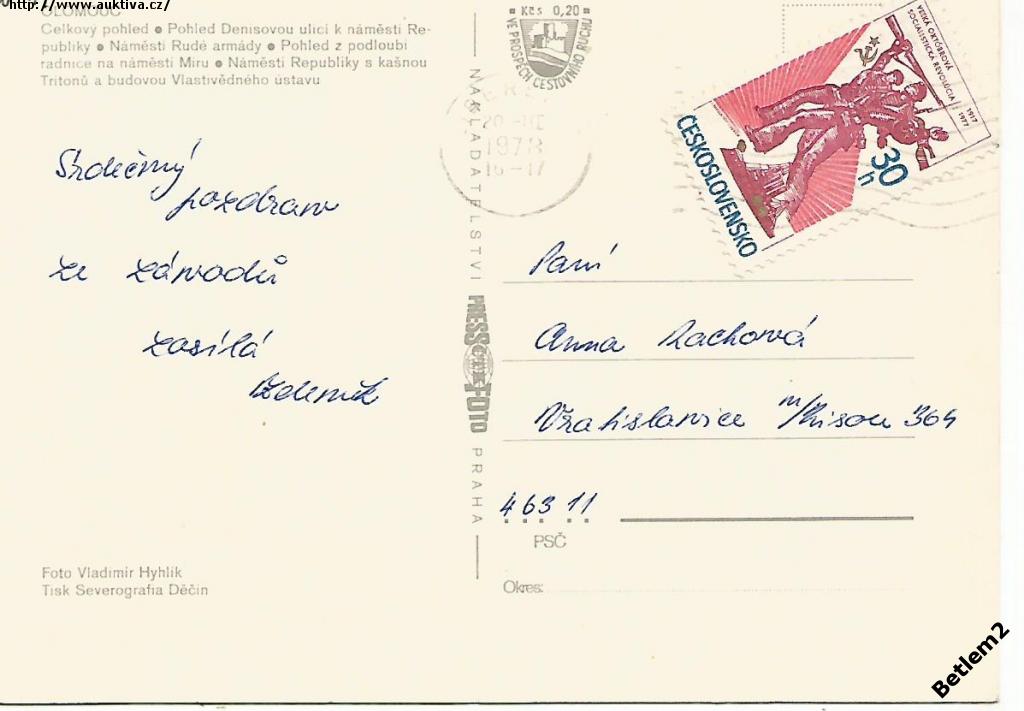 http://www.auktiva.cz/
OLOMOUC
Celkový pohled ● Pohled Denisovou ulicí k náměstí Re-
publiky ● Náměstí Rudé armády ● Pohled z podloubí
radnice na náměstí Míru ● Náměstí Republiky s kašnou
Tritonů a budovou Vlastivědného ústavu
Srdečný
pozdrav
ze závodů
zasílá
Zdeněk
Foto Vladimír Hyhlík
Tisk Severografia Děčín
NAKLADATELSTVÍ
PRESSFOTO
PRAHA
Kčs 0,20
VE PROSPĚCH CESTOVNÍHO RUCHU
1978
16-17
VELKÁ ŘÍJNOVÁ
SOCIALISTICKÁ REVOLÚCIA
1917
1977
30 h
ČESKOSLOVENSKO
Paní
Anna Rachová
Vratislavice n/Nisou 364
463 11
PSČ
Okres:
Betlem2